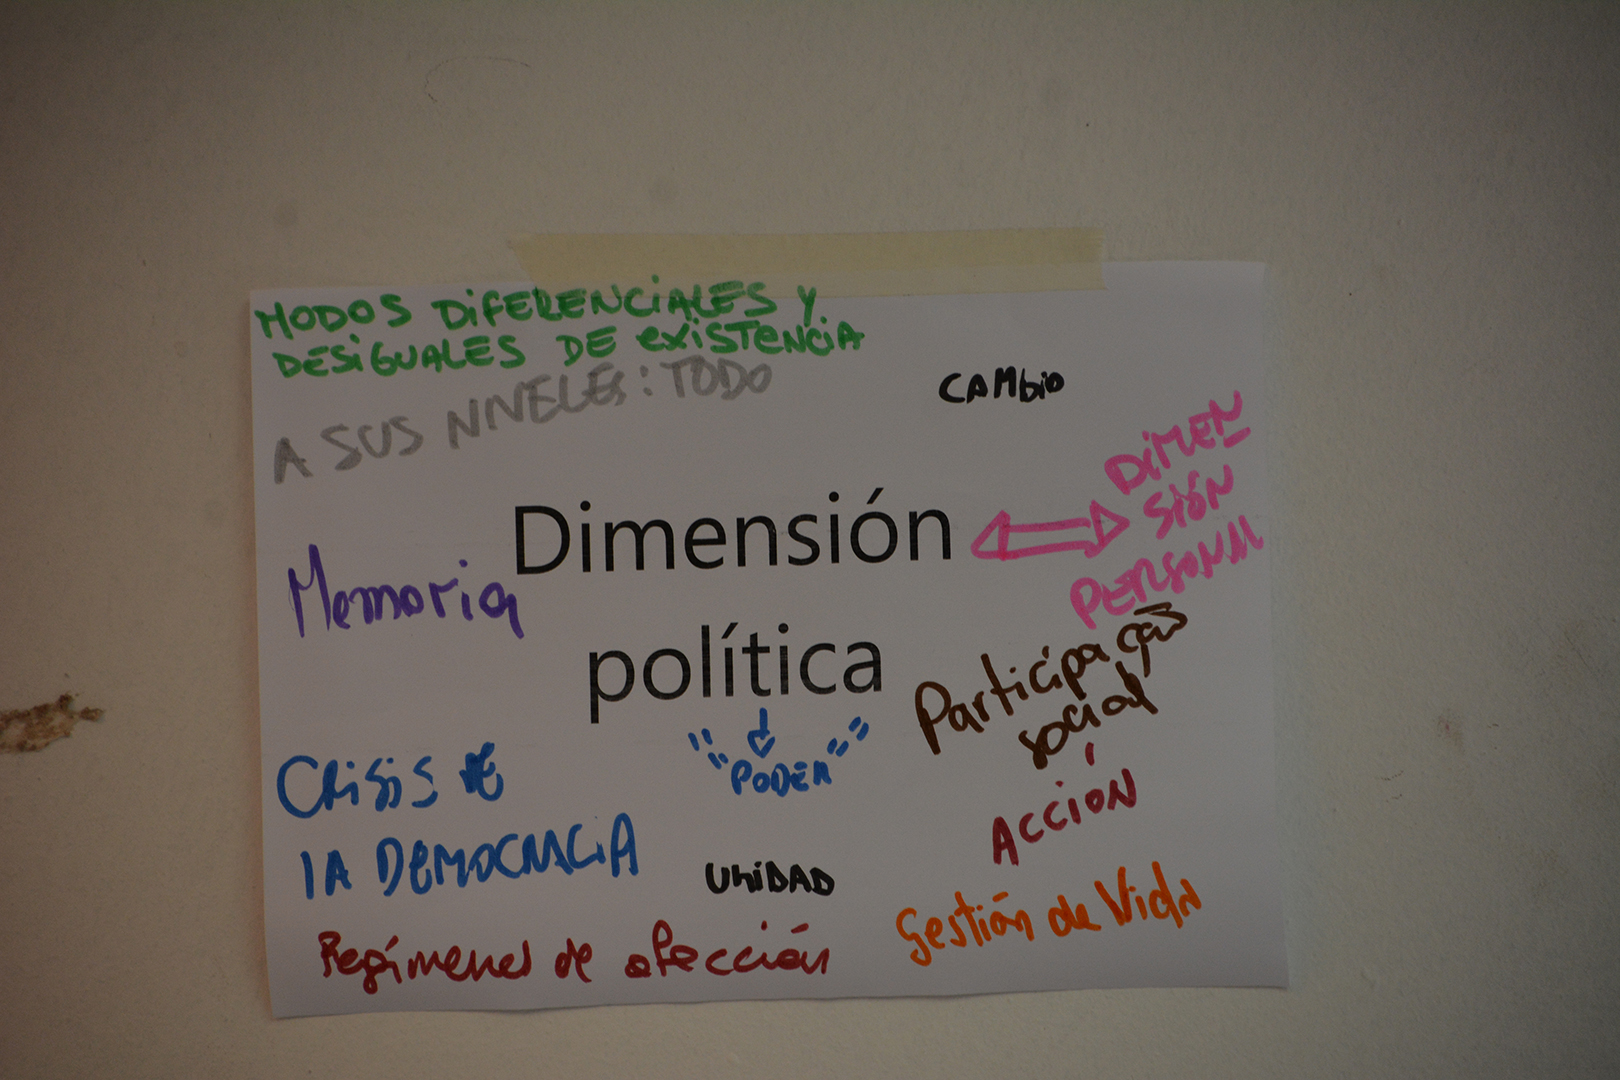 MODOS DIFERENCIALES Y
DESIGUALES DE EXISTENCIA
A SUS NIVELES: TODO
CAMbiO
Dimensión
⟺
DIMEN
SIÓN
PERSONAL
Memoria
política
↓
""PODER""
Participação
social
Crisis DE
lA DEMOCRACIA
ACCIÓN
UNIDAD
Gestión de Vida
Regímenes de afección